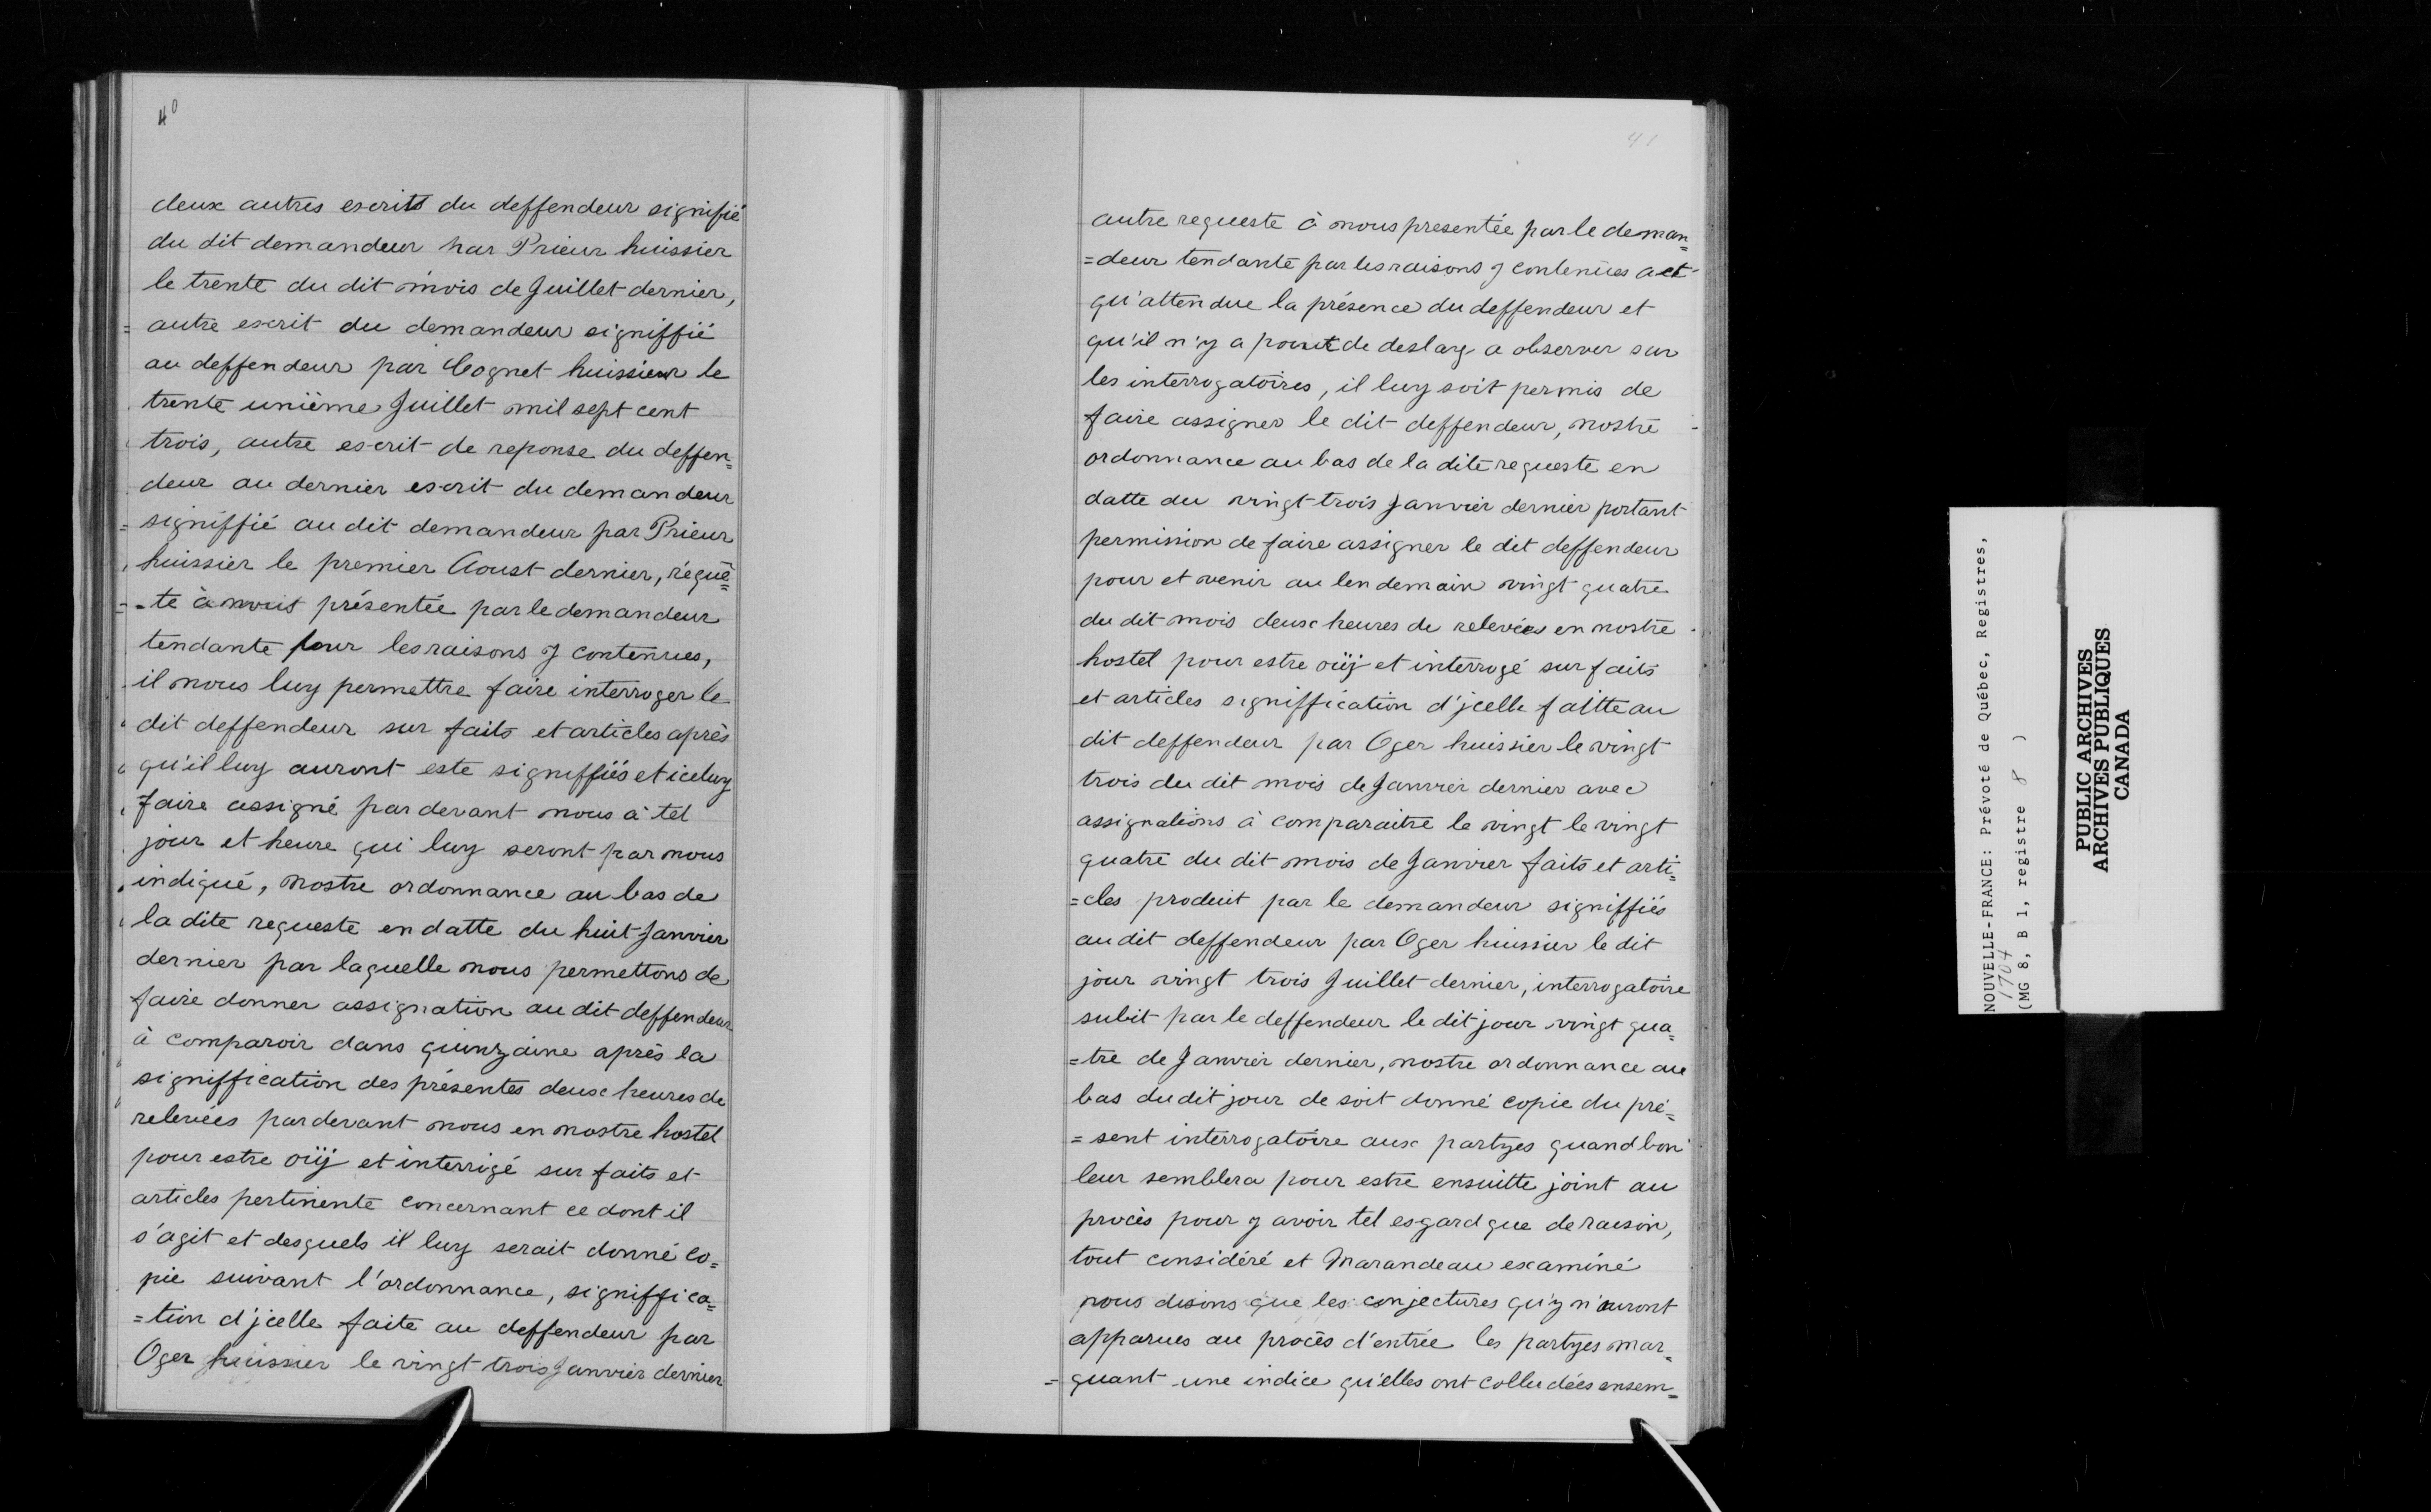 40
deux autres escrits du deffendeur signifié
du dit demandeur par Prieur huissier
le trente du dit mois de Juillet dernier,
= autre escrit du demandeur signiffié
au deffendeur par Cognet huissier le
trente unième Juillet mil sept cent
trois, autre escrit de reponse du deffen=
deur au dernier escrit du demandeur
= signiffié au dit demandeur par Prieur
huissier le premier Aoust dernier, requê=
=te à nous présentée par le demandeur
tendante pour les raisons y contenues,
il nous luy permettre faire interroger le
dit deffendeur sur faits et articles après
qu'il luy auront este signiffiés et iceluy
faire assigné par devant nous à tel
jour et heure qui luy seront par nous
indiqué, nostre ordonnance au bas de
la dite requeste en datte du huit Janvier
dernier par laquelle nous permettons de
faire donner assignation au dit deffendeur
à comparoir dans quinzaine après la
signiffication des présentes deux heures de
relevées pardevant nous en nostre hostel
pour estre oüy et interrigé sur faits et
articles pertinente concernant ce dont il
s'agit et desquels il luy serait donné co=
pie suivant l'ordonnance, signiffica=
=tion d'jcelle faite au deffendeur par
Oger huissier le vingt-trois Janvier dernier
41
autre requeste à nous presentée par le deman=
=deur tendante par les raisons y contenües a et
qu'attendue la présence du deffendeur et
qu'il n'y a point de deslay a observer sur
les interrogatoires, il luy soit permis de
faire assigner le dit deffendeur, nostre
ordonnance au bas de la dite requeste en
datte du vingt-trois Janvier dernier portant
permission de faire assigner le dit deffendeur
pour et venir au lendemain vingt quatre
du dit mois deux heures de relevées en nostre
hostel pour estre oüy et interrogé sur faits
et articles signiffication d'jcelle faitte au
dit deffendeur par Oger huissier le vingt
trois du dit mois de Janvier dernier avec
assignations à comparaitre le vingt le vingt
quatre du dit mois de Janvier faits et arti=
=cles produit par le demandeur signiffiés
au dit deffendeur par Oger huissier le dit
jour vingt trois Juillet dernier, interrogatoire
subit par le deffendeur le dit jour vingt qua=
=tre de Janvier dernier, nostre ordonnance au
bas du dit jour de soit donné copie du pré=
=sent interrogatoire aux partyes quand bon
leur semblera pour estre ensuitte joint au
procès pour y avoir tel esgard que de raison,
tout considéré et Marandeau examiné
nous disons que les conjectures qu'y n'auront
apparues au procès d'entrée les partyes mar=
=quant une indice qu'elles ont colludées ensem=
NOUVELLE-FRANCE: Prévoté de Québec, Registres,
1704
(MG 8, B 1, registre 8 )
PUBLIC ARCHIVES
ARCHIVES PUBLIQUES
CANADA